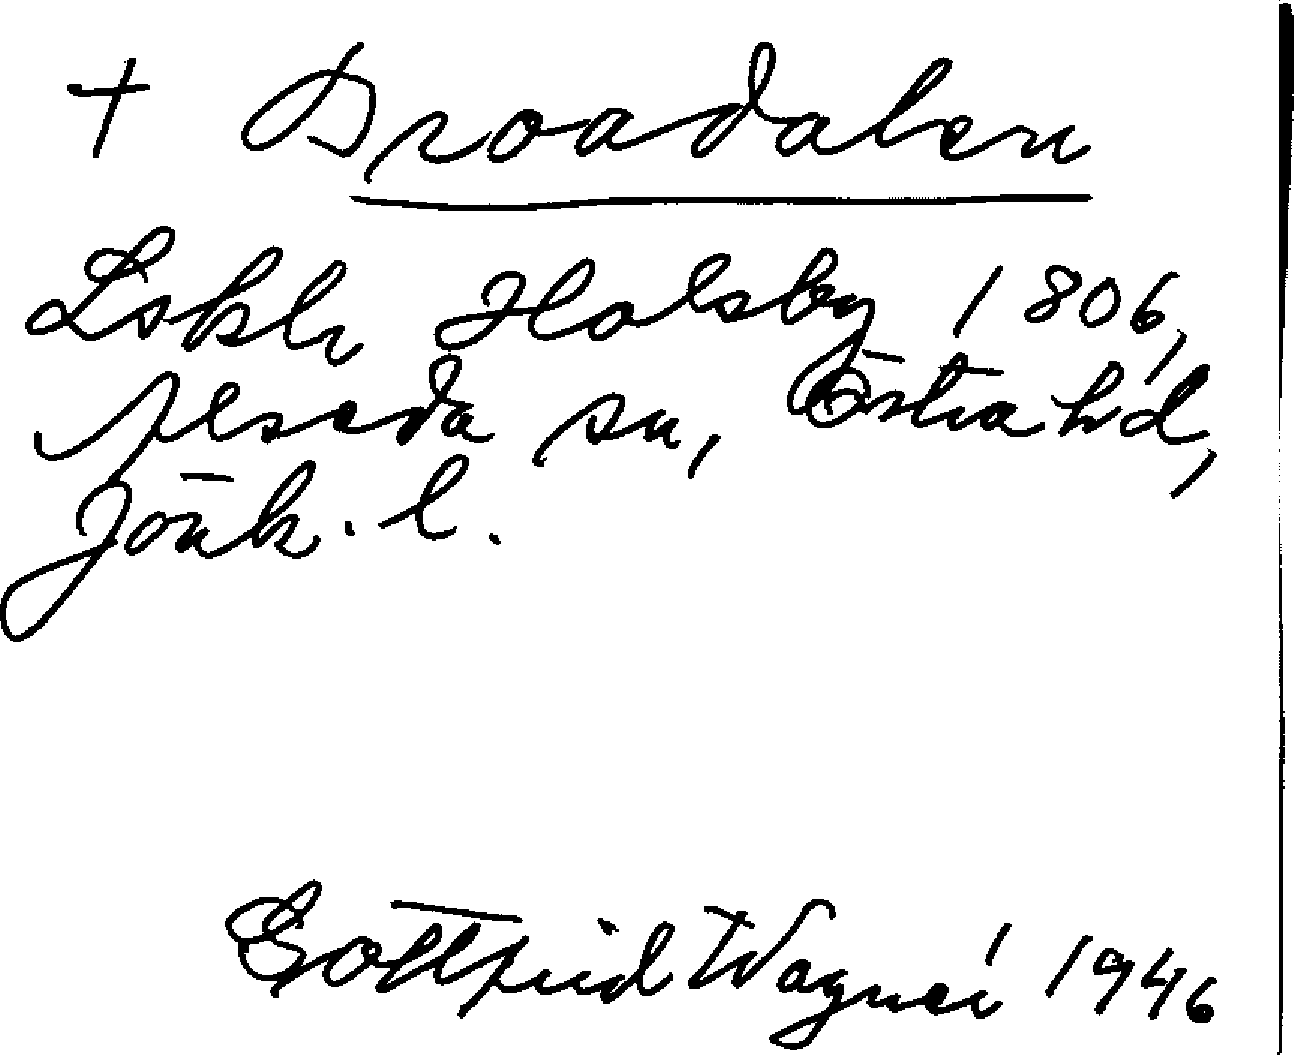 + Droadalen
Lokh Holsby 1806,
Alseda sn, Östra hd,
Jönk. l.
Gottfrid Wagnér 1946